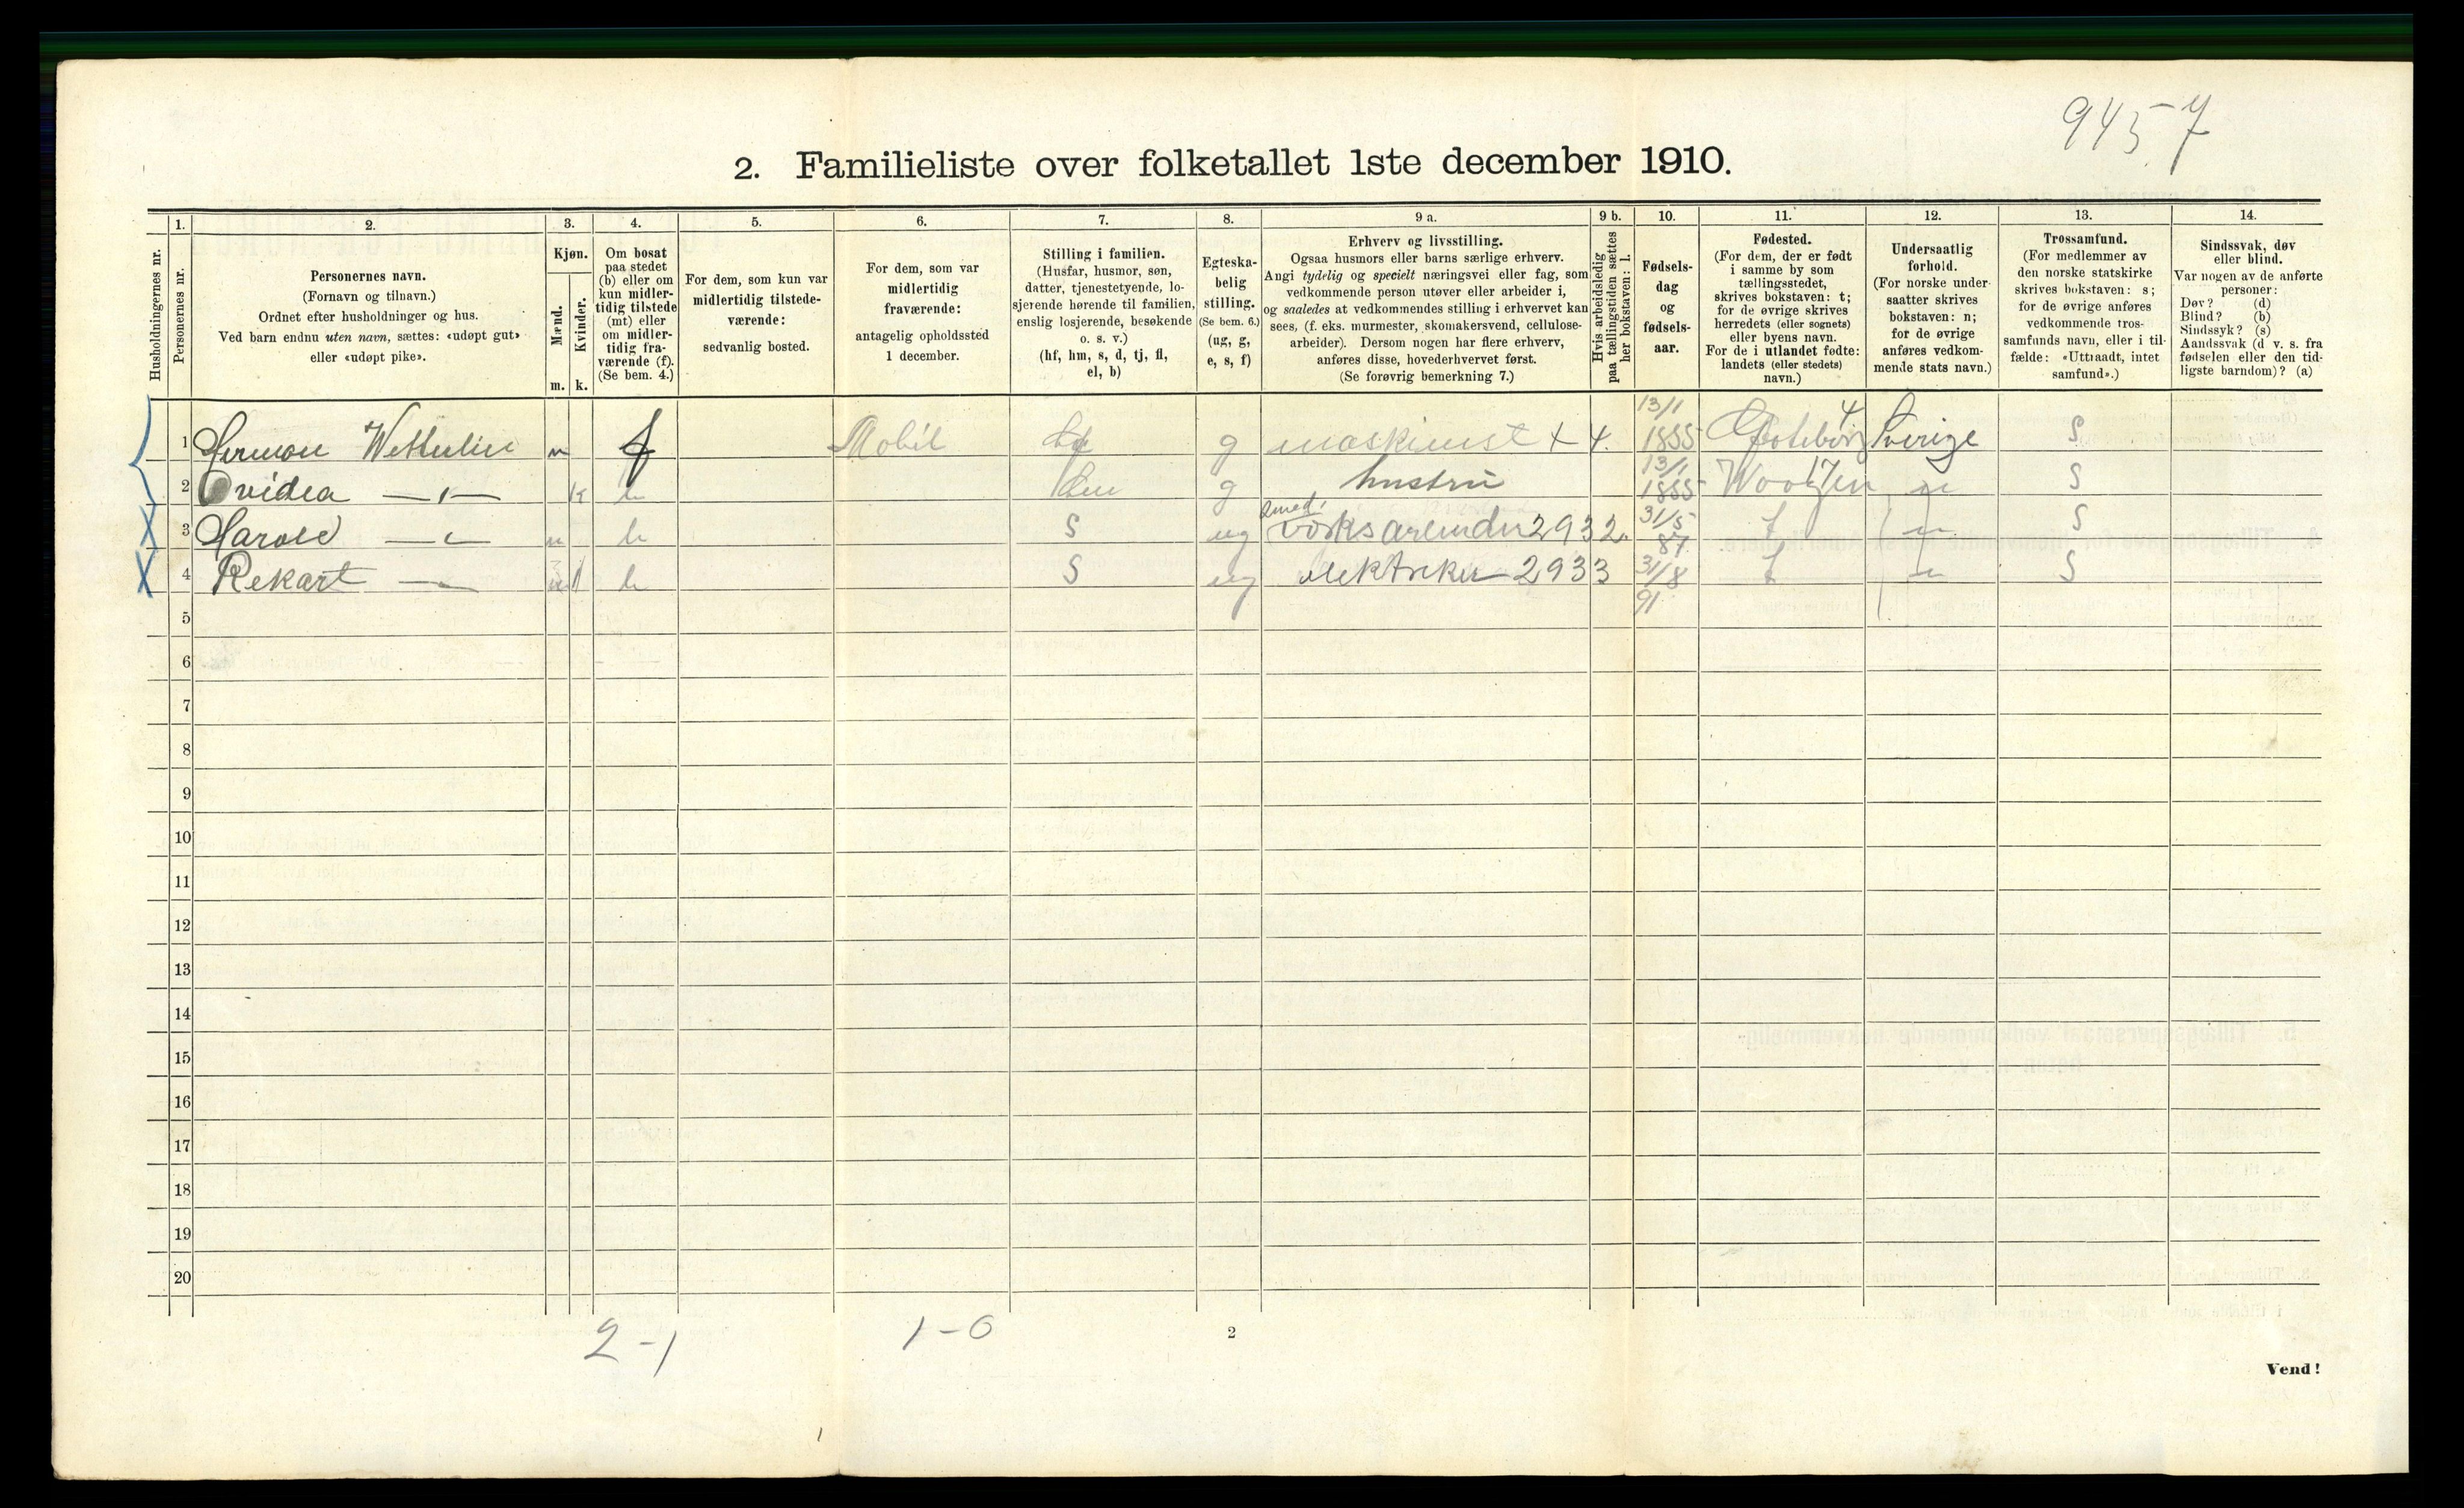 945 7
2. Familieliste over folketallet 1ste december 1910.
Husholdningernes nr.
1.
Personernes nr.
2.
Personernes navn.
(Fornavn og tilnavn.)
Ordnet efter husholdninger og hus.
Ved barn endnu uten navn, sættes: «udøpt gut»
eller «udøpt pike».
3.
Kjøn.
Mænd.
Kvinder.
m. k.
4.
Om bosat
paa stedet
(b) eller om
kun midler-
tidig tilstede
(mt) eller
om midler-
tidig fra-
værende (f).
(Se bem. 4.)
5.
For dem, som kun var
midlertidig tilstede-
værende:
sedvanlig bosted.
6.
For dem, som var
midlertidig
fraværende:
antagelig opholdssted
1 december.
7.
Stilling i familien.
(Husfar, husmor, søn,
datter, tjenestetyende, lo-
sjerende hørende til familien,
enslig losjerende, besøkende
o. s. v.)
(hf, hm, s, d, tj, fl,
el, b)
8.
Egteska-
belig
stilling.
(Se bem. 6.)
(ug, g,
e, s, f)
9 a.
Erhverv og livsstilling.
Ogsaa husmors eller barns særlige erhverv.
Angi tydelig og specielt næringsvei eller fag, som
vedkommende person utøver eller arbeider i,
og saaledes at vedkommendes stilling i erhvervet kan
sees, (f. eks. murmester, skomakersvend, cellulose-
arbeider). Dersom nogen har flere erhverv,
anføres disse, hovederhvervet først.
(Se forøvrig bemerkning 7.)
9 b.
Hvis arbeidsledig
paa tællingstiden sættes
her bokstaven: l.
10.
Fødsels-
dag
og
fødsels-
aar.
11.
Fødested.
(For dem, der er født
i samme by som
tællingsstedet,
skrives bokstaven: t;
for de øvrige skrives
herredets (eller sognets)
eller byens navn.
For de i utlandet fødte:
landets (eller stedets)
navn.)
12.
Undersaatlig
forhold.
(For norske under-
saatter skrives
bokstaven: n;
for de øvrige
anføres vedkom-
mende stats navn.)
13.
Trossamfund.
(For medlemmer av
den norske statskirke
skrives bokstaven: s;
for de øvrige anføres
vedkommende tros-
samfunds navn, eller i til-
fælde: «Uttraadt, intet
samfund».)
14.
Sindssvak, døv
eller blind.
Var nogen av de anførte
personer:
Døv? (d)
Blind? (b)
Sindssyk? (s)
Aandssvak (d. v. s. fra
fødselen eller den tid-
ligste barndom)? (a)
1 Herman Wetterlin m f Mobil hf g maskinist + 4. 13/1 1855 Goteborg 4 Sverige S
2 Ovidea —〃— k b hm g hustru 13/1 1855 n S
3 Harold —〃— m b S ug smed. 2932. 31/5 87 t n S
4 Rekart —〃— m b S ug elektriker 2933 31/8 91 t n S
5
6
7
8
9
10
11
12
13
14
15
16
17
18
19
20
2-1
1-0
2
Vend!